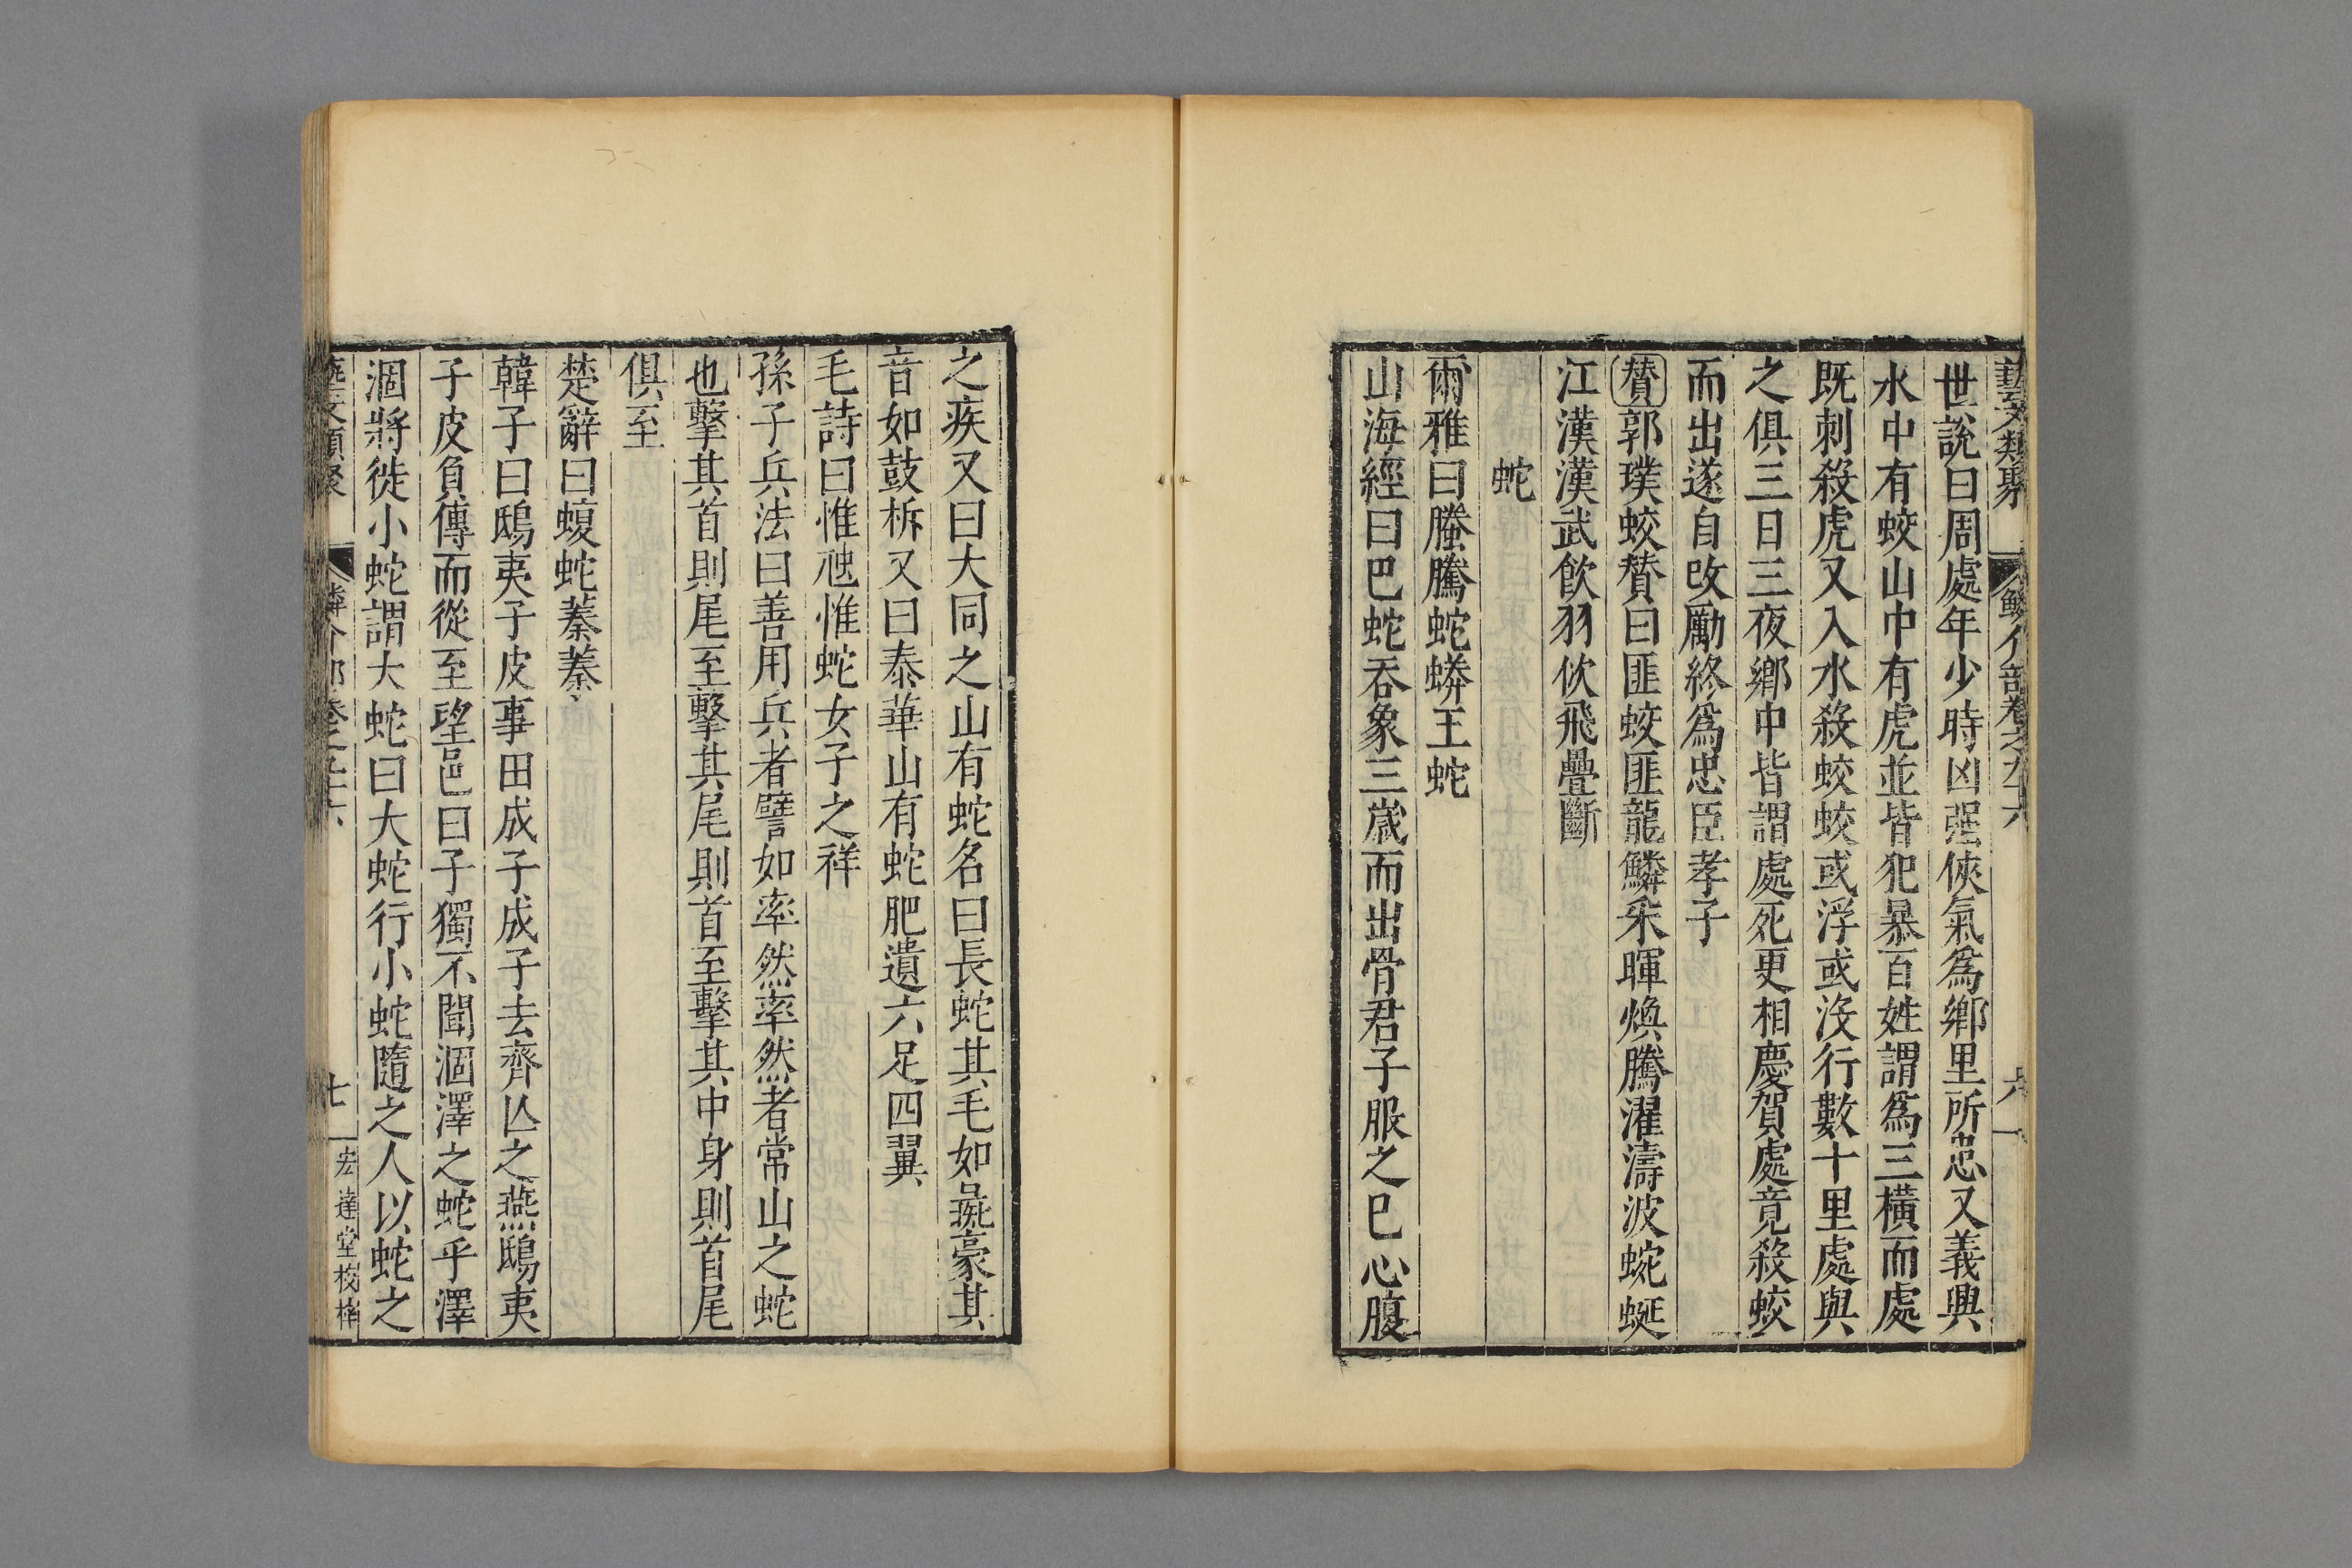 藝文類聚 鱗介部卷之九十六 六
世說曰周處年少時凶强俠氣爲鄉里所患又義興
水中有蛟山中有虎並皆犯暴百姓謂爲三橫而處
既刺殺虎又入水殺蛟蛟或浮或沒行數十里處與
之俱三日三夜鄉中皆謂處死更相慶賀處竟殺蛟
而出遂自改勵終爲忠臣孝子
贊郭璞蛟贊曰匪蛟匪龍鱗采暉煥騰濯濤波蜿蜒
江漢漢武飲羽佽飛疊斷
蛇
爾雅曰螣騰蛇蟒王蛇
山海經曰巴蛇吞象三歲而出骨君子服之已心腹
之疾又曰大同之山有蛇名曰長蛇其毛如彘豪其
音如鼓柝又曰泰華山有蛇肥遺六足四翼
毛詩曰惟虺惟蛇女子之祥
孫子兵法曰善用兵者譬如率然率然者常山之蛇
也擊其首則尾至擊其尾則首至擊其中身則首尾
俱至
楚辭曰蝮蛇蓁蓁
韓子曰鴟夷子皮事田成子成子去齊亾之燕鴟夷
子皮負傳而從至望邑曰子獨不聞涸澤之蛇乎澤
涸將徙小蛇謂大蛇曰大蛇行小蛇隨之人以蛇之
藝文類聚 鱗介部卷之九十六 七 宏達堂校梓